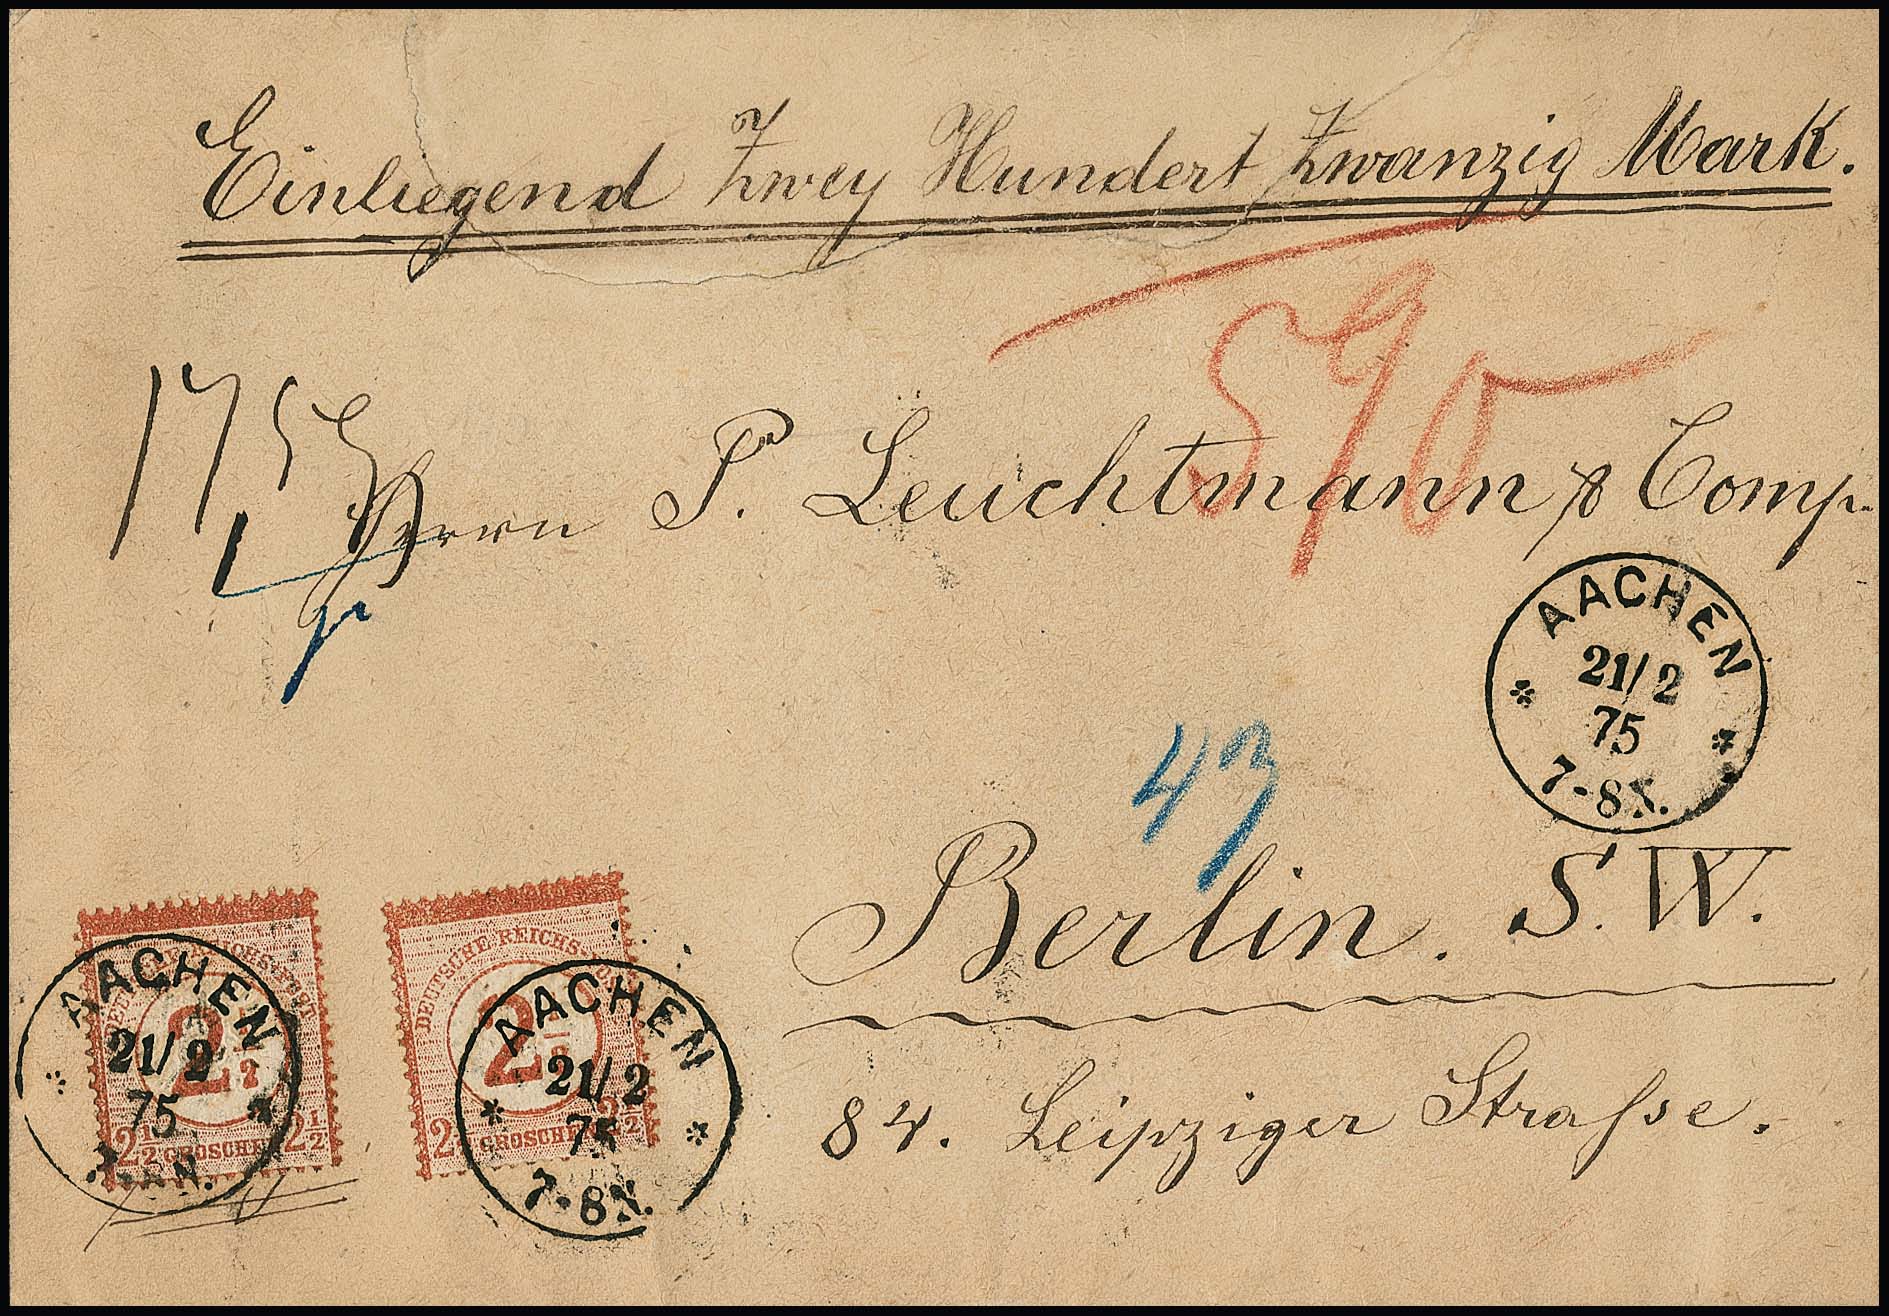 Einliegend Zwey Hundert Zwanzig Mark.
590
Herrn P. Leuchtmann & Comp.
AACHEN
21/2
75
7-8N.
43
Berlin. S.W.
84. Leipziger Straſse.
DEUTSCHE REICHS-POST
2 1/2
2 1/2 GROSCHEN 2 1/2
AACHEN
21/2
75
7-8N.
DEUTSCHE REICHS-POST
2 1/2
2 1/2 GROSCHEN 2 1/2
AACHEN
21/2
75
7-8N.